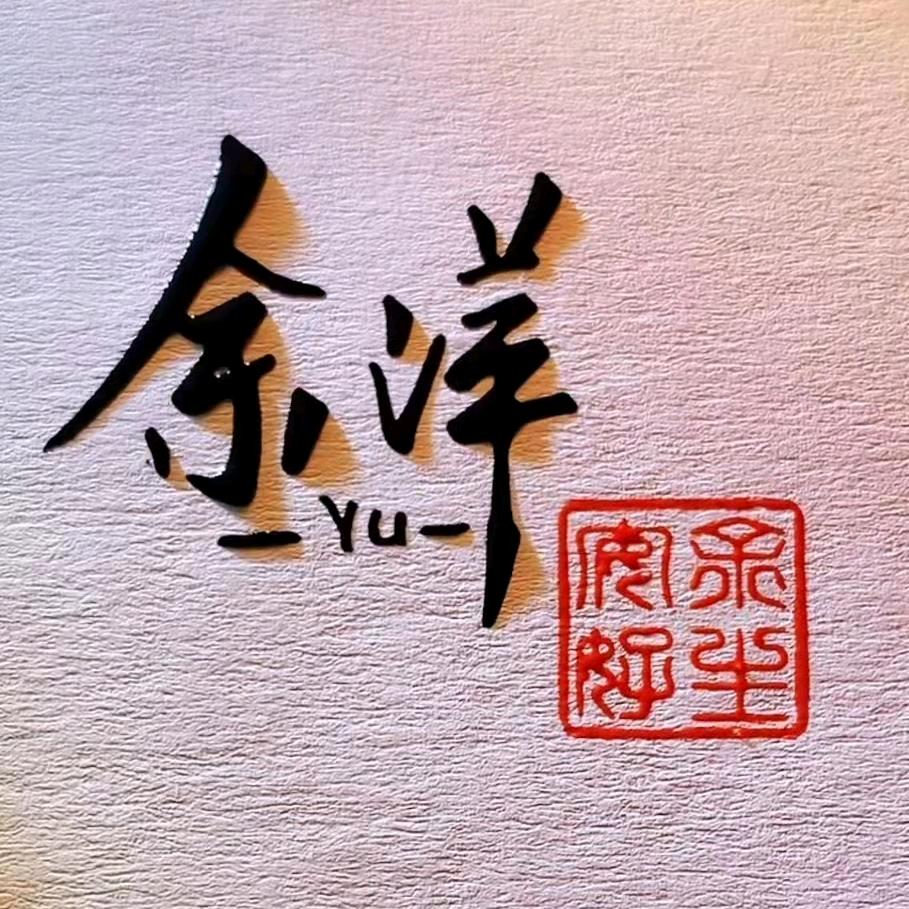 余洋
-Yu-
余生
安好